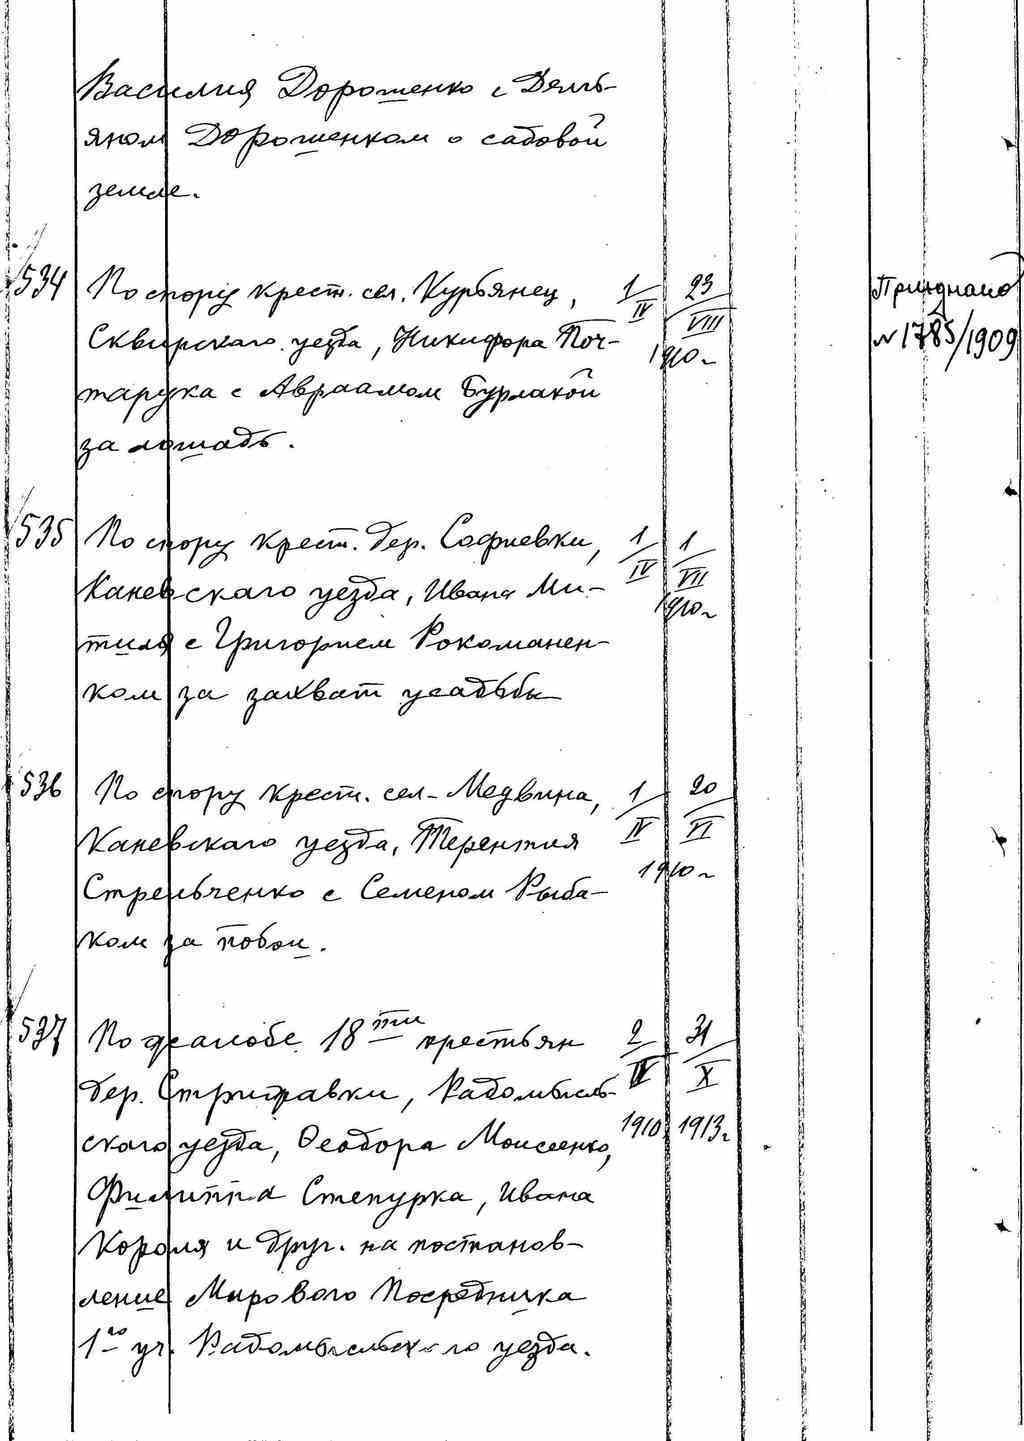 Василия Дорошенко с Демь-
яном Дорошенком о садовой
земле.
534 По спору крест. сел. Курьянец, 1/IV 23/VIII 1910 г Приднано
Сквирскаго уезда, Никифора Поч- № 1785/1909
тарука с Авраамом Бурлакой
за лошадь.
535 По спору крест. дер. Софиевки, 1/IV 1/VII 1910 г
Каневскаго уезда, Ивана Ми-
тиля с Григорием Рокоманен-
ком за захват усадьбы
536 По спору крест. сел. Медвина, 1/IV 20/VI 1910 г
Каневскаго уезда, Терентия
Стрельченко с Семеном Рыба-
ком за побои.
537 По жалобе 18ти крестьян 2/IV 1910 31/X 1913 г
дер. Стрижавки, Радомысль-
скаго уезда, Феодора Моисеенко,
Филиппа Степурка, Ивана
Короля и друг. на постанов-
ление Мирового Посредника
1го уч. Радомысльского уезда.